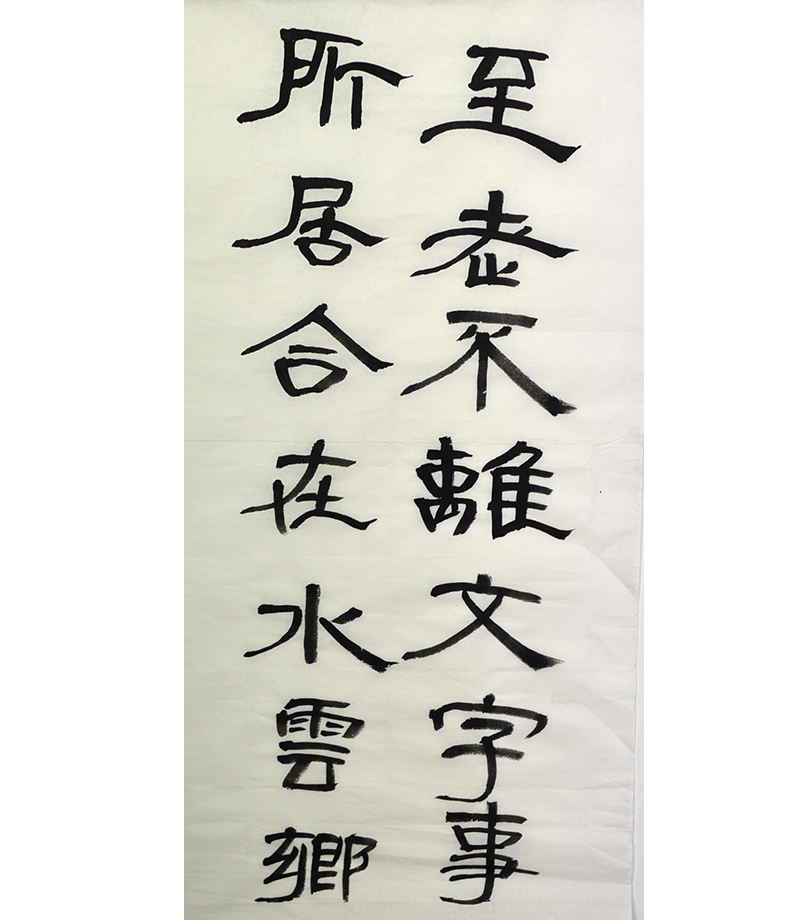 至老不離文字事
所居合在水雲鄉